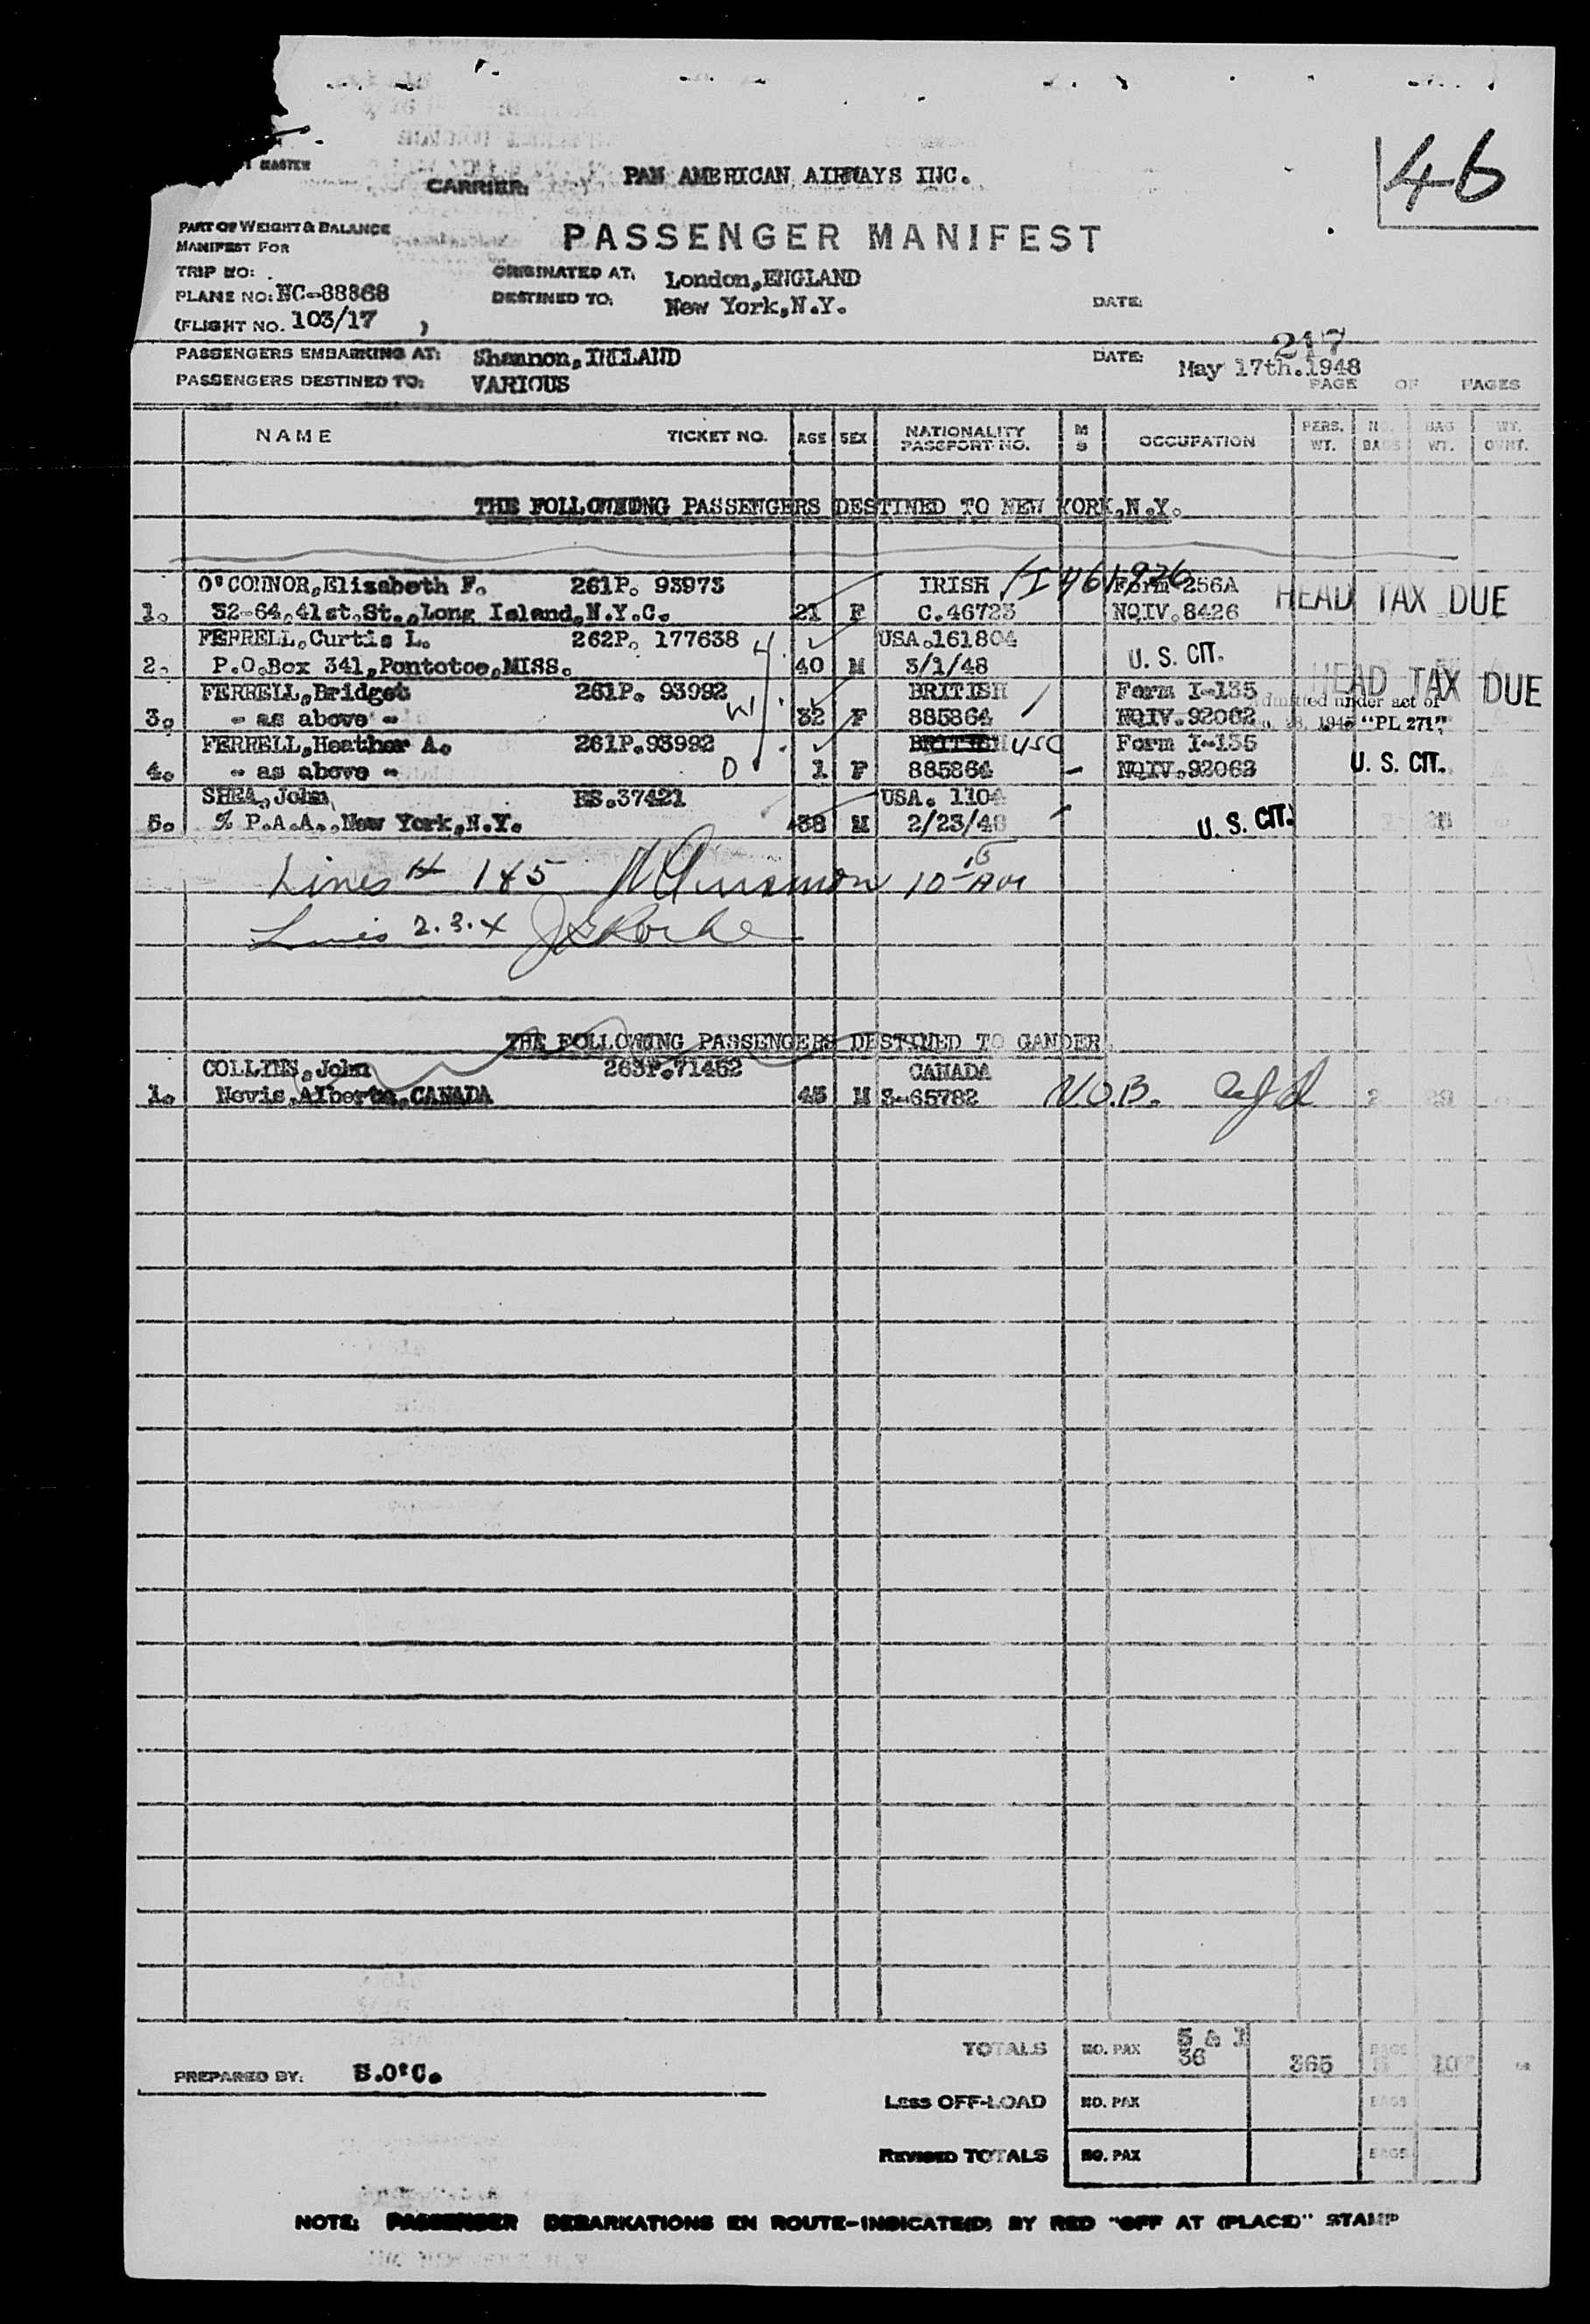 MASTER
CARRIER: PAN AMERICAN AIRWAYS INC.
46
PART OF WEIGHT & BALANCE
MANIFEST FOR
PASSENGER MANIFEST
TRIP NO:
ORIGINATED AT: London, ENGLAND
PLANE NO: NC-88868
DESTINED TO: New York, N.Y.
DATE:
(FLIGHT NO. 103/17 )
217
PASSENGERS EMBARKING AT: Shannon, IRELAND
DATE: May 17th. 1948
PASSENGERS DESTINED TO: VARIOUS
PAGE OF PAGES
NAME TICKET NO. AGE SEX NATIONALITY PASSPORT NO. M S OCCUPATION PERS. WT. NO. BAGS BAG WT. WT. OVHT.
THE FOLLOWING PASSENGERS DESTINED TO NEW YORK, N.Y.
O'CONNOR, Elizabeth F. 261P. 93973 IRISH Form 256A
1. 32-64, 41st. St., Long Island, N.Y.C. 21 F C.46723 NQIV. 8426 HEAD TAX DUE
FERRELL, Curtis L. 262P. 177638 H USA. 161804
2. P.O. Box 341, Pontotoc, MISS. 40 M 3/1/48 U. S. CIT.
FERRELL, Bridget 261P. 93992 W BRITISH Form I-135 HEAD TAX DUE
3. - as above - 32 F 885864 NQIV. 92062 1945 "PL 271"
FERRELL, Heather A. 261P. 93992 BRITISH USC Form I-135
4. - as above - D 1 F 885864 NQIV. 92063 U. S. CIT.
SHEA, John ES. 37421 USA. 1104
5. % P.A.A., New York, N.Y. 38 M 2/23/48 U. S. CIT.
Lines # 1 & 5 10 15 AM
Lines 2. 3. 4 J E Roche
THE FOLLOWING PASSENGERS DESTINED TO GANDER
COLLINS, John 263P. 71452 CANADA
1. Nevis, Alberta, CANADA 45 M 3-65782 N.O.B. 2
TOTALS NO. PAX 5 & 1
36 365 BAGS
PREPARED BY: S.O'C.
LESS OFF-LOAD NO. PAX BAGS
REVISED TOTALS NO. PAX BAGS
NOTE: PASSENGER DEBARKATIONS EN ROUTE-INDICATE(D) BY RED "OFF AT (PLACE)" STAMP